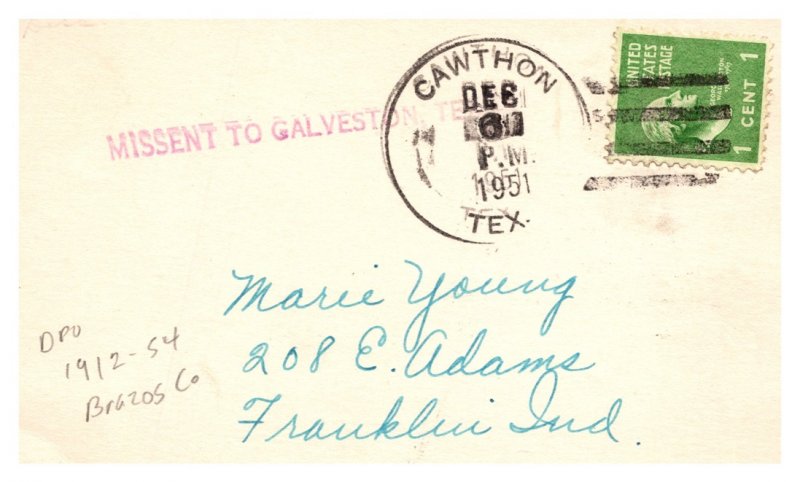 MISSENT TO GALVESTON, TE
CAWTHON
DEC
6
P.M.
1951
TEX.
UNITED
STATES
POSTAGE
1 CENT 1
Marie Young
208 E. Adams
Franklin Ind.
DPO
1912-54
Brazos Co